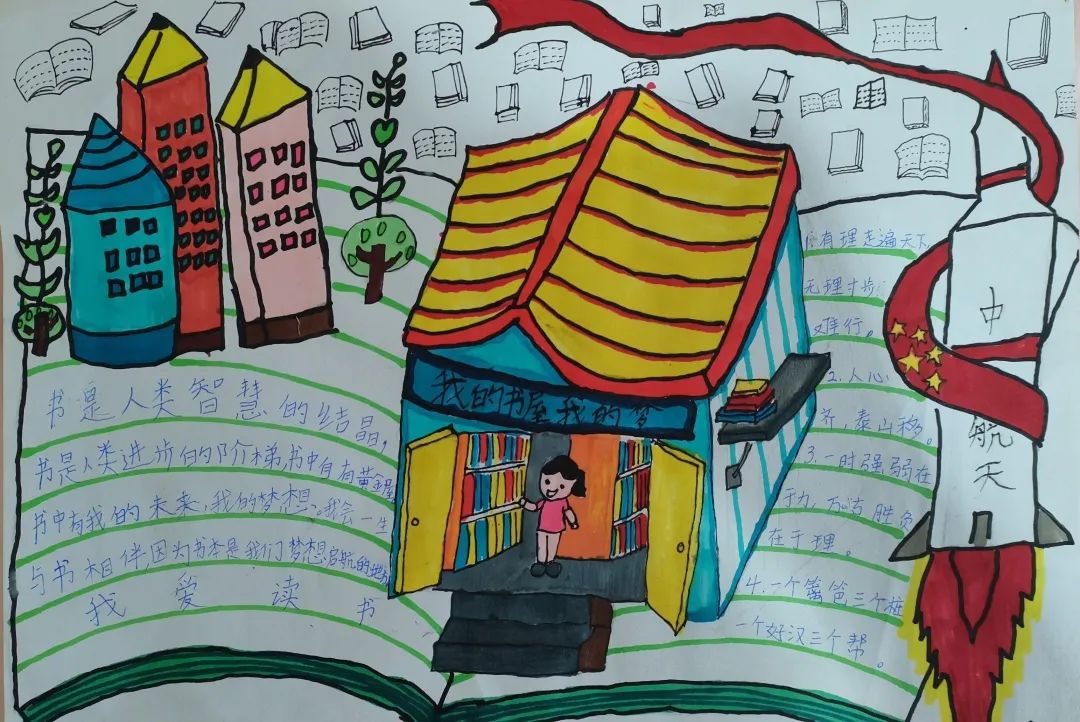 我的书屋我的梦
书是人类智慧的结晶,
书是人类进步的阶梯,书中自有黄金屋
书中有我的未来,我的梦想。我会一生
与书相伴,因为书本是我们梦想启航的地方
我爱读书
1.有理走遍天下,
无理寸步
难行。
2.人心
齐,泰山移。
3.一时强弱在
于力,万古胜负
在于理。
4.一个篱笆三个桩
一个好汉三个帮。
中
航
天